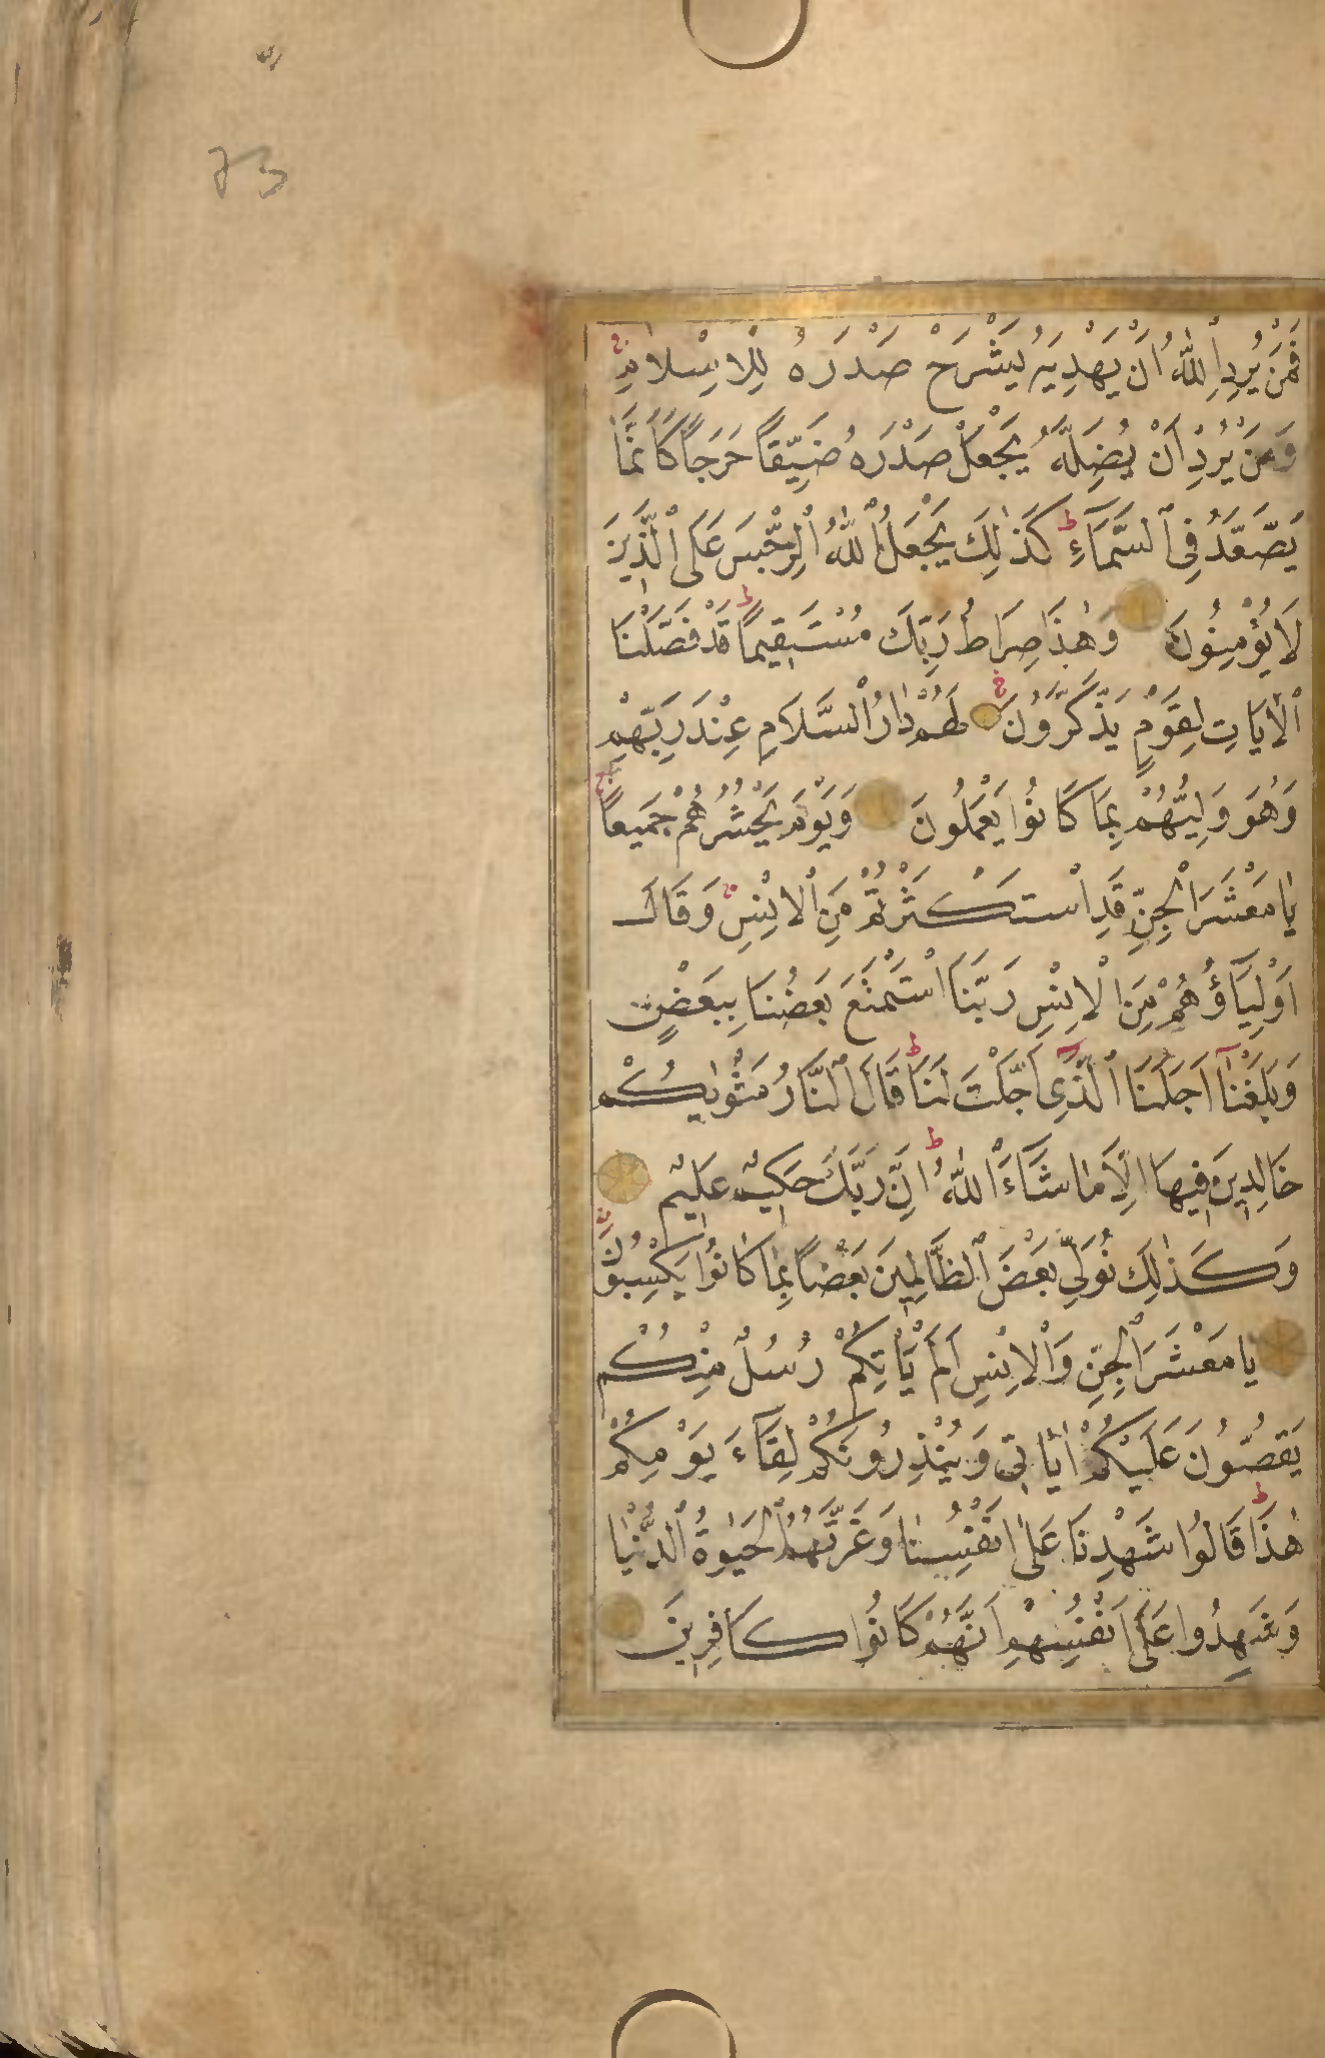 73
فَمَنْ يُرِدِ اللّٰهُ اَنْ يَهْدِيَهُ يَشْرَحْ صَدْرَهُ لِلْاِسْلَامِ
وَمَنْ يُرِدْ اَنْ يُضِلَّهُ يَجْعَلْ صَدْرَهُ ضَيِّقًا حَرَجًا كَاَنَّمَا
يَصَّعَّدُ فِى السَّمَٓاءِ ط كَذٰلِكَ يَجْعَلُ اللّٰهُ الرِّجْسَ عَلَى الَّذِينَ
لَا يُؤْمِنُونَ وَهٰذَا صِرَاطُ رَبِّكَ مُسْتَقِيمًا ط قَدْ فَصَّلْنَا
الْاٰيَاتِ لِقَوْمٍ يَذَّكَّرُونَ لَهُمْ دَارُ السَّلَامِ عِنْدَ رَبِّهِمْ
وَهُوَ وَلِيُّهُمْ بِمَا كَانُوا يَعْمَلُونَ وَيَوْمَ يَحْشُرُهُمْ جَمِيعًا ج
يَا مَعْشَرَ الْجِنِّ قَدِ اسْتَكْثَرْتُمْ مِنَ الْاِنْسِ ج وَقَالَ
اَوْلِيَٓاؤُهُمْ مِنَ الْاِنْسِ رَبَّنَا اسْتَمْتَعَ بَعْضُنَا بِبَعْضٍ
وَبَلَغْنَٓا اَجَلَنَا الَّذِٓى اَجَّلْتَ لَنَا ط قَالَ النَّارُ مَثْوٰيكُمْ
خَالِدِينَ فِيهَا اِلَّا مَا شَٓاءَ اللّٰهُ ط اِنَّ رَبَّكَ حَكِيمٌ عَلِيمٌ
وَكَذٰلِكَ نُوَلِّى بَعْضَ الظَّالِمِينَ بَعْضًا بِمَا كَانُوا يَكْسِبُونَ
يَا مَعْشَرَ الْجِنِّ وَالْاِنْسِ اَلَمْ يَأْتِكُمْ رُسُلٌ مِنْكُمْ
يَقُصُّونَ عَلَيْكُمْ اٰيَاتِى وَيُنْذِرُونَكُمْ لِقَٓاءَ يَوْمِكُمْ
هٰذَا ط قَالُوا شَهِدْنَا عَلٰى اَنْفُسِنَا وَغَرَّتْهُمُ الْحَيٰوةُ الدُّنْيَا
وَشَهِدُوا عَلٰى اَنْفُسِهِمْ اَنَّهُمْ كَانُوا كَافِرِينَ